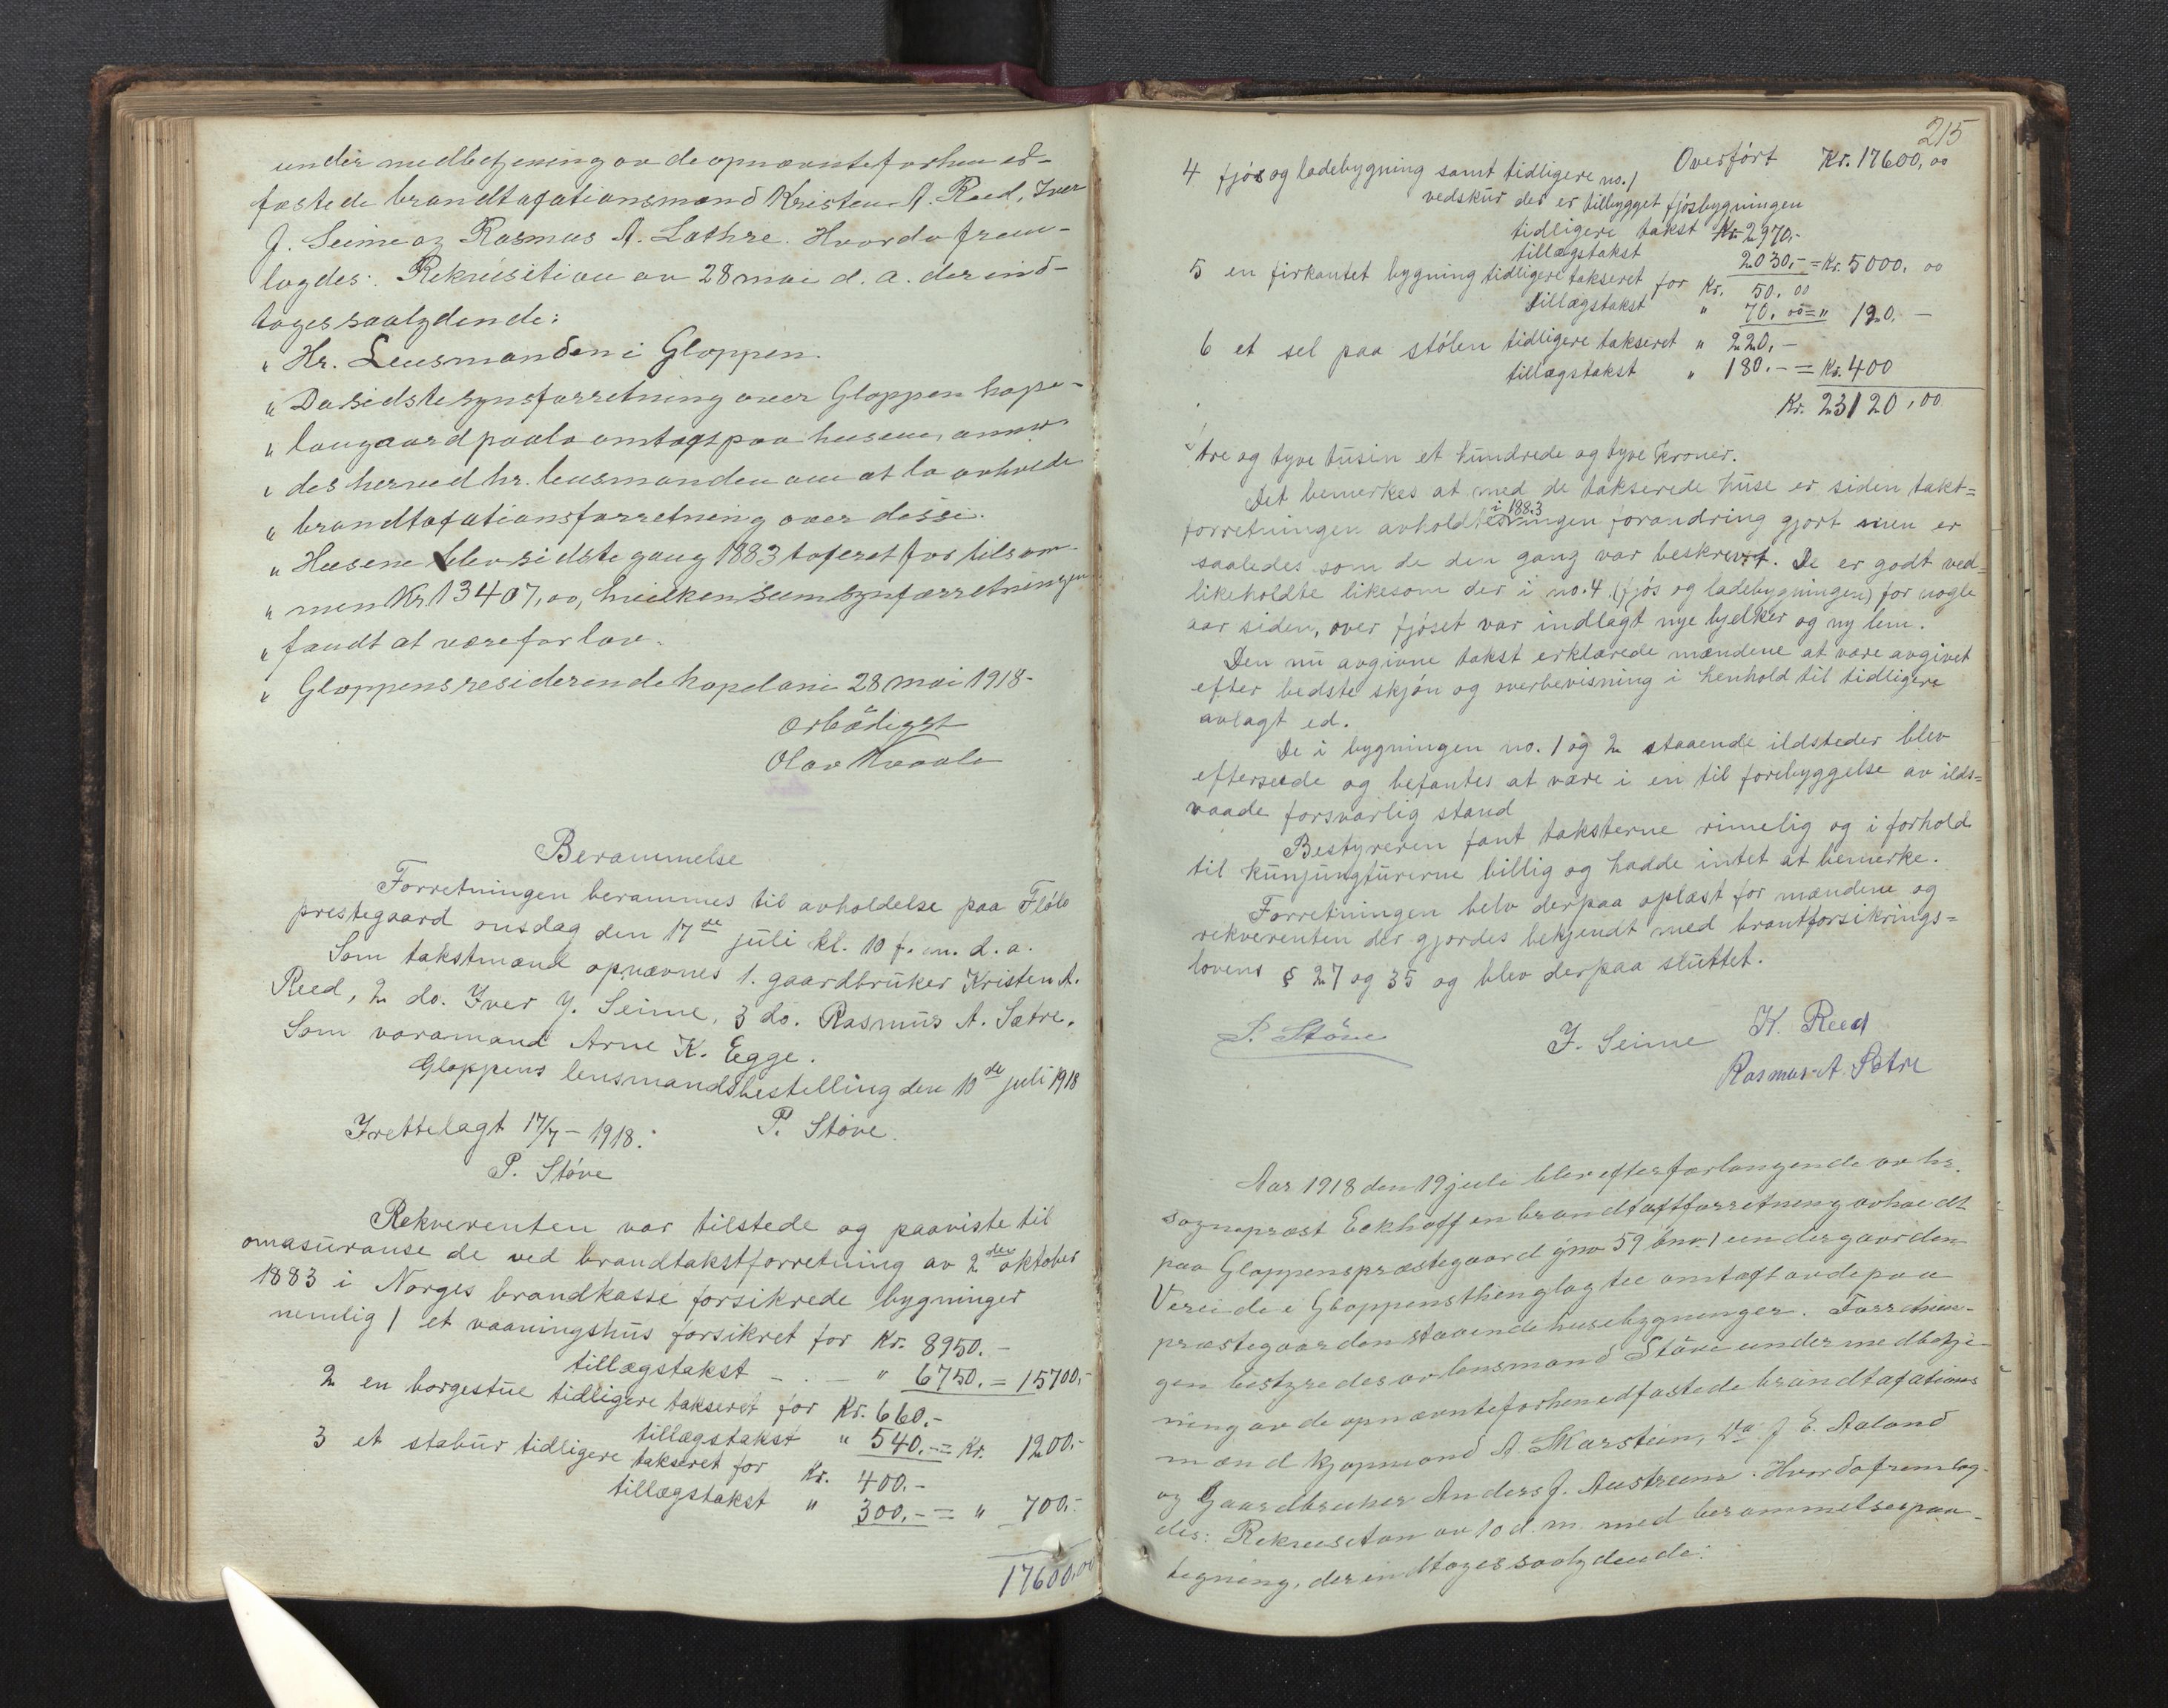 under medbetjening av de opnævnte forhen ed-
fæstede brandtaxationsmænd Kristen A. Reed, Iver
J. Seime og Rasmus A. Sæthre. Hvorda frem-
lagdes: Rekvisition av 28 mai d. a. der ind-
tages saalydende:
" Hr. Lensmanden i Gloppen.
" Da sidste synsforretning over Gloppen kape-
" langaard paala omtaxt paa husene, anmo-
" des herved hr. lensmanden om at la avholde
" brandtaxationsforretning over disse.
" Husene blev sidste gang 1883 taxeret for tilsam-
" men Kr. 13407,00, hvilken sum synforretningen
" fandt at være for lav.
" Gloppens residerende kapelani 28 mai 1918-
ærbödigst
Olav Kvaale
Berammelse
Forretningen berammes til avholdelse paa Fløto
prestegaard onsdag den 17de juli kl. 10 f. m. d. a.
Som takstmænd opnævnes 1. gaardbruker Kristen A.
Reed, 2 do. Iver J. Seime, 3 do. Rasmus A. Sætre.
Som varamand Arne K. Egge.
Gloppens lensmandsbestelling den 10de juli 1918
P. Støve.
Irettelagt 17/7 - 1918.
P. Støve
Rekverenten var tilstede og paaviste til
omasuranse de ved brandtakstforretning av 2den oktober
1883 i Norges brandkasse forsikrede bygninger
nemlig 1 et vaaningshus forsikret for Kr. 8950.-
tillægstakst - . - " 6750. = 15700,-
2 en borgestue tidligere takseret for Kr. 660.-
tillægstakst " 540.-= Kr. 1200.-
3 et stabur tidligere takseret for Kr. 400.-
tillægstakst " 300.- = " 700.-
17600,00
215
Overført Kr. 17600,00
4 fjøs og ladebygning samt tidligere no. 1
vedskur der er tilbygget fjøsbygningen
tidligere takst Kr 2970.-
tillægstakst 2030,- = Kr. 5000. 00
5 en firkantet bygning tidligere takseret for Kr. 50.00
tillægstakst " 70.00 = " 120. -
6 et sel paa stølen tidligere takseret " 220.-
tillægstakst " 180.- = Kr. 400
Kr. 23120,00
tre og tyve tusin et hundrede og tyve kroner.
Det bemerkes at med de takserede huse er siden takt=
forretningen avholdtes i 1883 ingen forandring gjort men er
saaledes som de den gang var beskrevet. De er godt ved=
likeholdte likesom der i no. 4 (fjøs og ladebygningen) for nogle
aar siden, over fjøset var indlagt nye bjelker og ny lem.
Den nu avgivne takst erklærede mændene at være avgivet
efter bedste skjøn og overbevisning i henhold til tidligere
avlagt ed.
De i bygningen no. 1 og 2 staaende ildsteder blev
efterseede og befantes at være i en til forebyggelse av ilds=
vaade forsvarlig stand
Bestyreren fant taksterne rimelig og i forhold
til kunjungturerne billig og hadde intet at bemerke.
Forretningen belv derpaa oplæst for mændene og
rekverenten der gjordes bekjendt med brantforsikrings=
lovens § 27 og 35 og blev derpaa sluttet.
P. Støve
J. Seime K. Reed
Rasmus A. Sætre
Aar 1918 den 19 juli blev efter forlangende av hr.
sognaprest Eckhoff en brandtaxtforretning avholdt
paa Gloppens præstegaard gno 59 bnr. 1 under gaarden
Vereide i Gloppens thinglag til omtaxt av de paa
præstegaarden staaende husebygninger. Forretnin-
gen bestyredes av lensmand Støve under medbetje-
ning av de opnævnte forhen edfæstede brandtaxations
mænd kjøpmand A. Skarstein, do J. E. Aaland
og Gaardbruker Anders J. Austrheim. Hvorda fremlag-
des: Rekvisition av 10 d. m. med berammelsespaa-
tegning, der indtages saalydende: